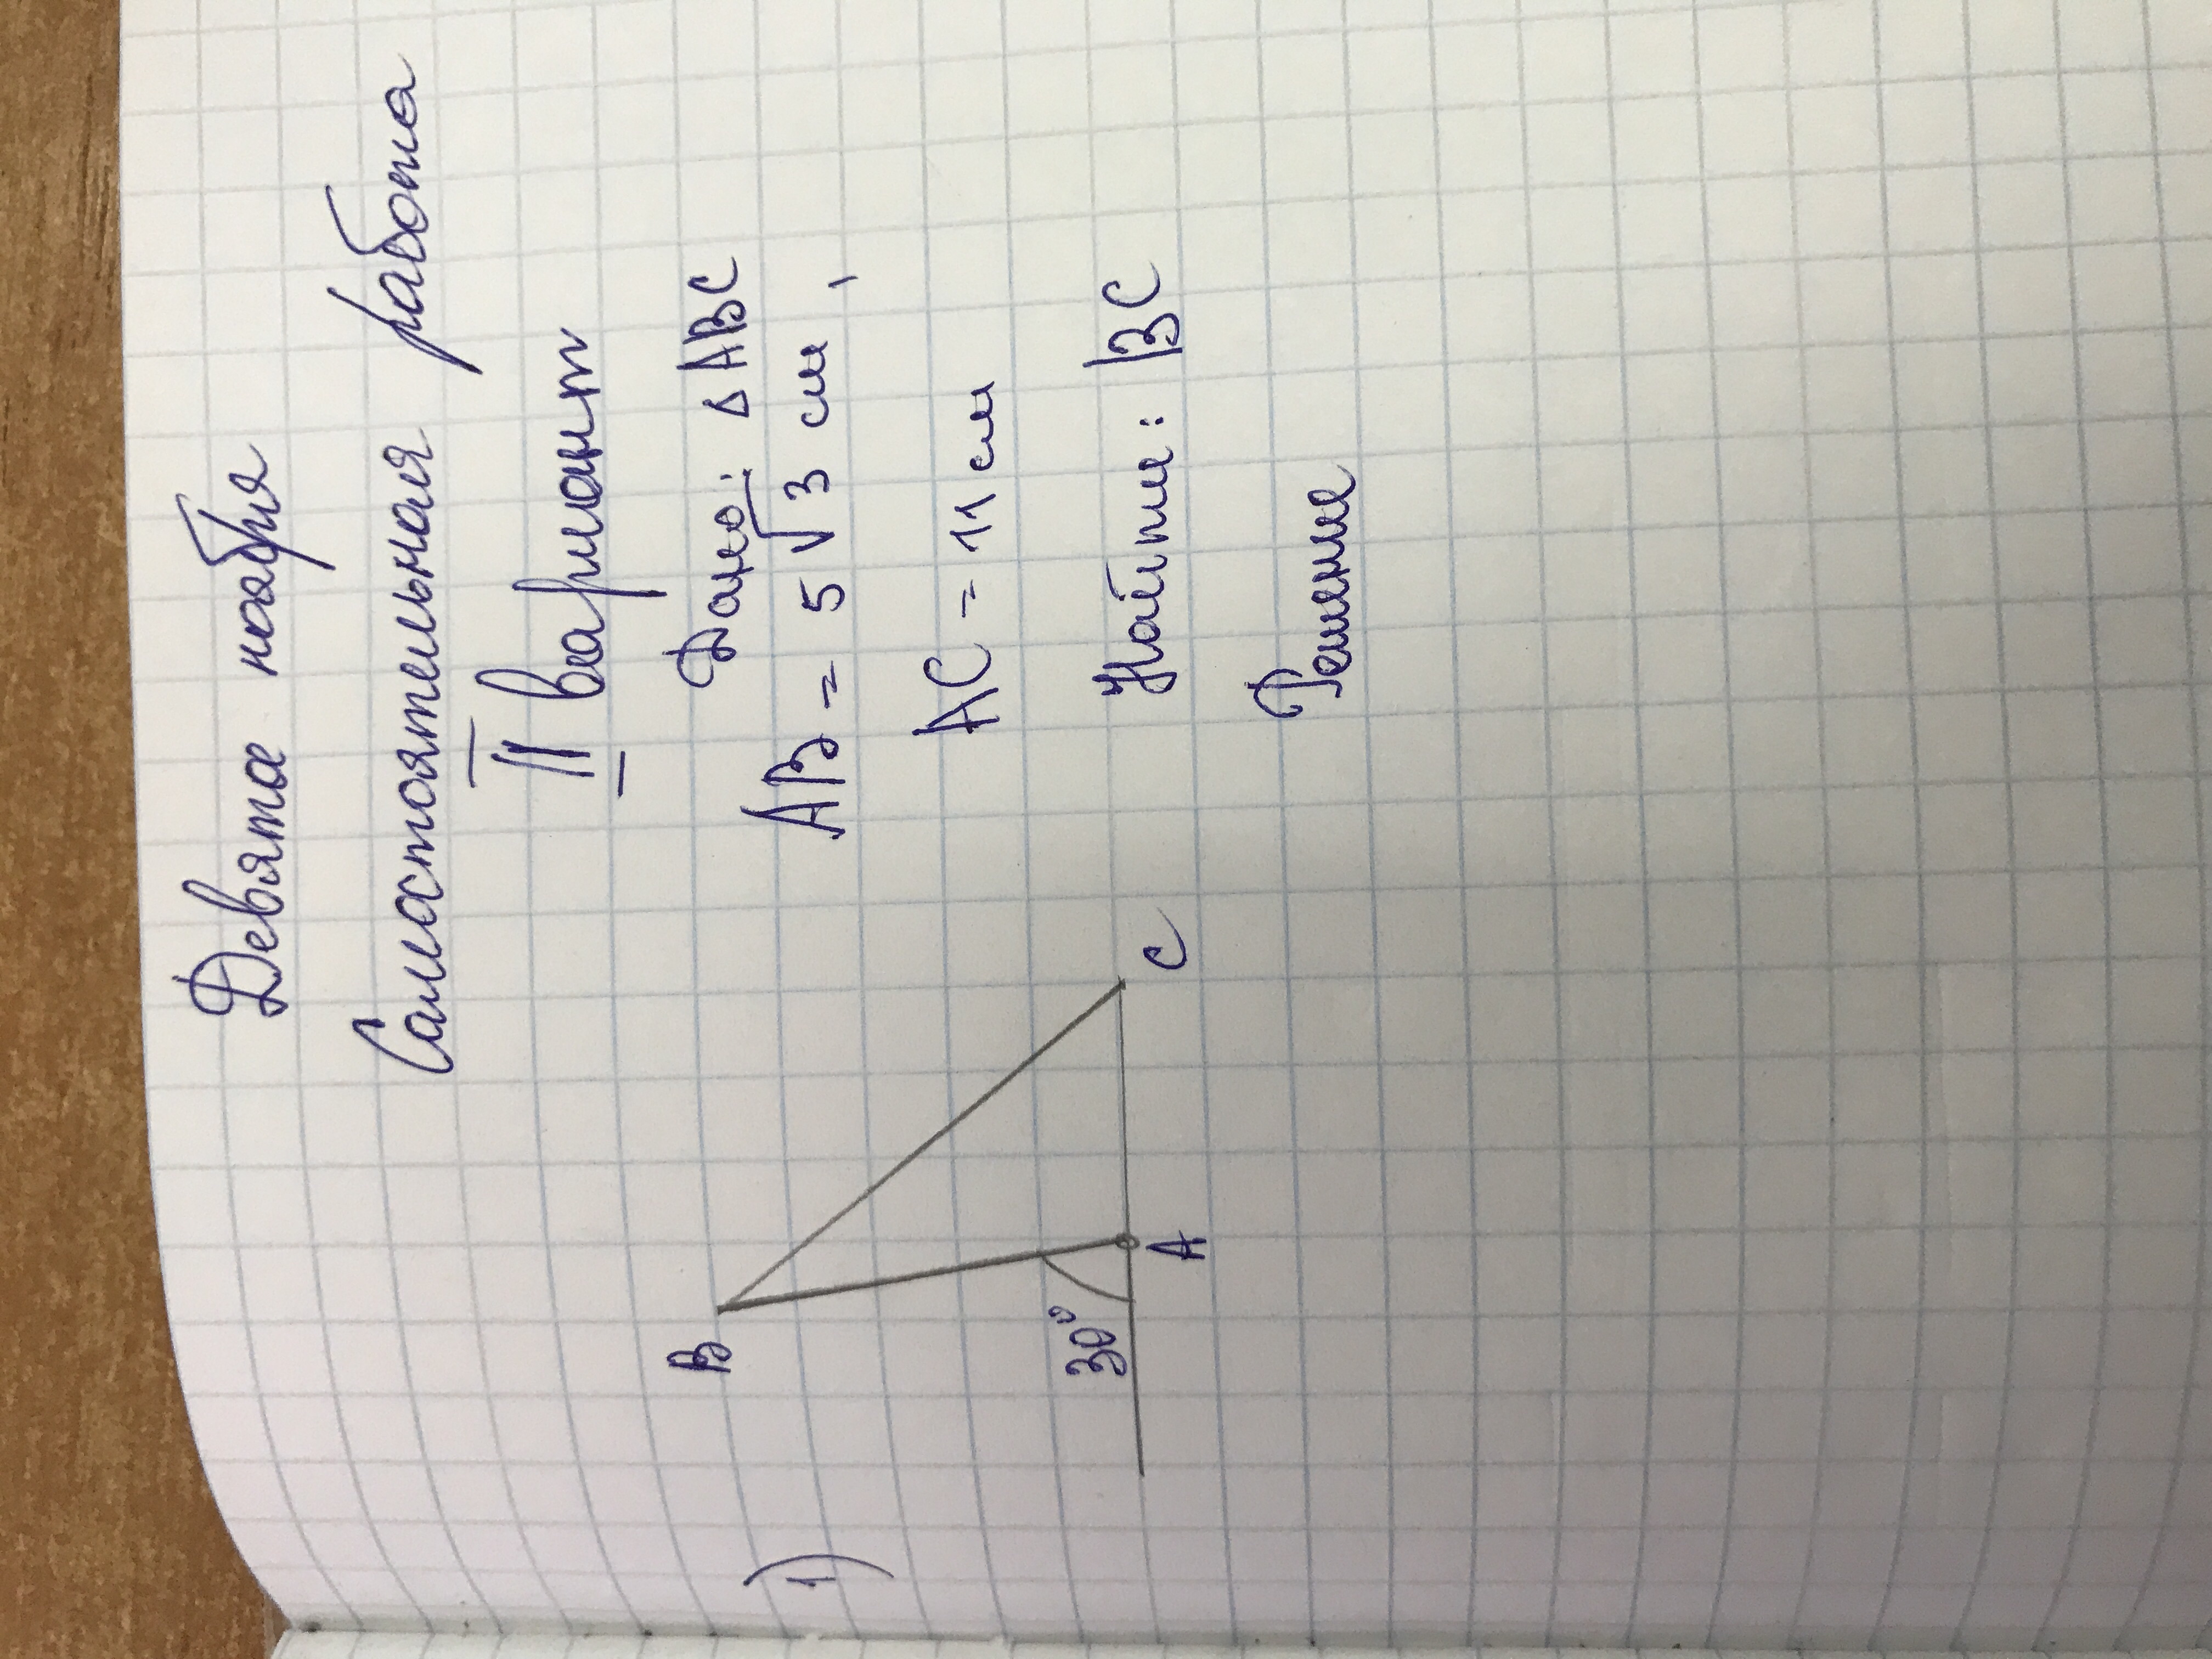 Девята ноября
Самостоятельная работа
II вариант
1)
Дано: △ABC
AB = 5√3 см,
AC = 11 см
Найти: BC
Решение
B
30°
A
C